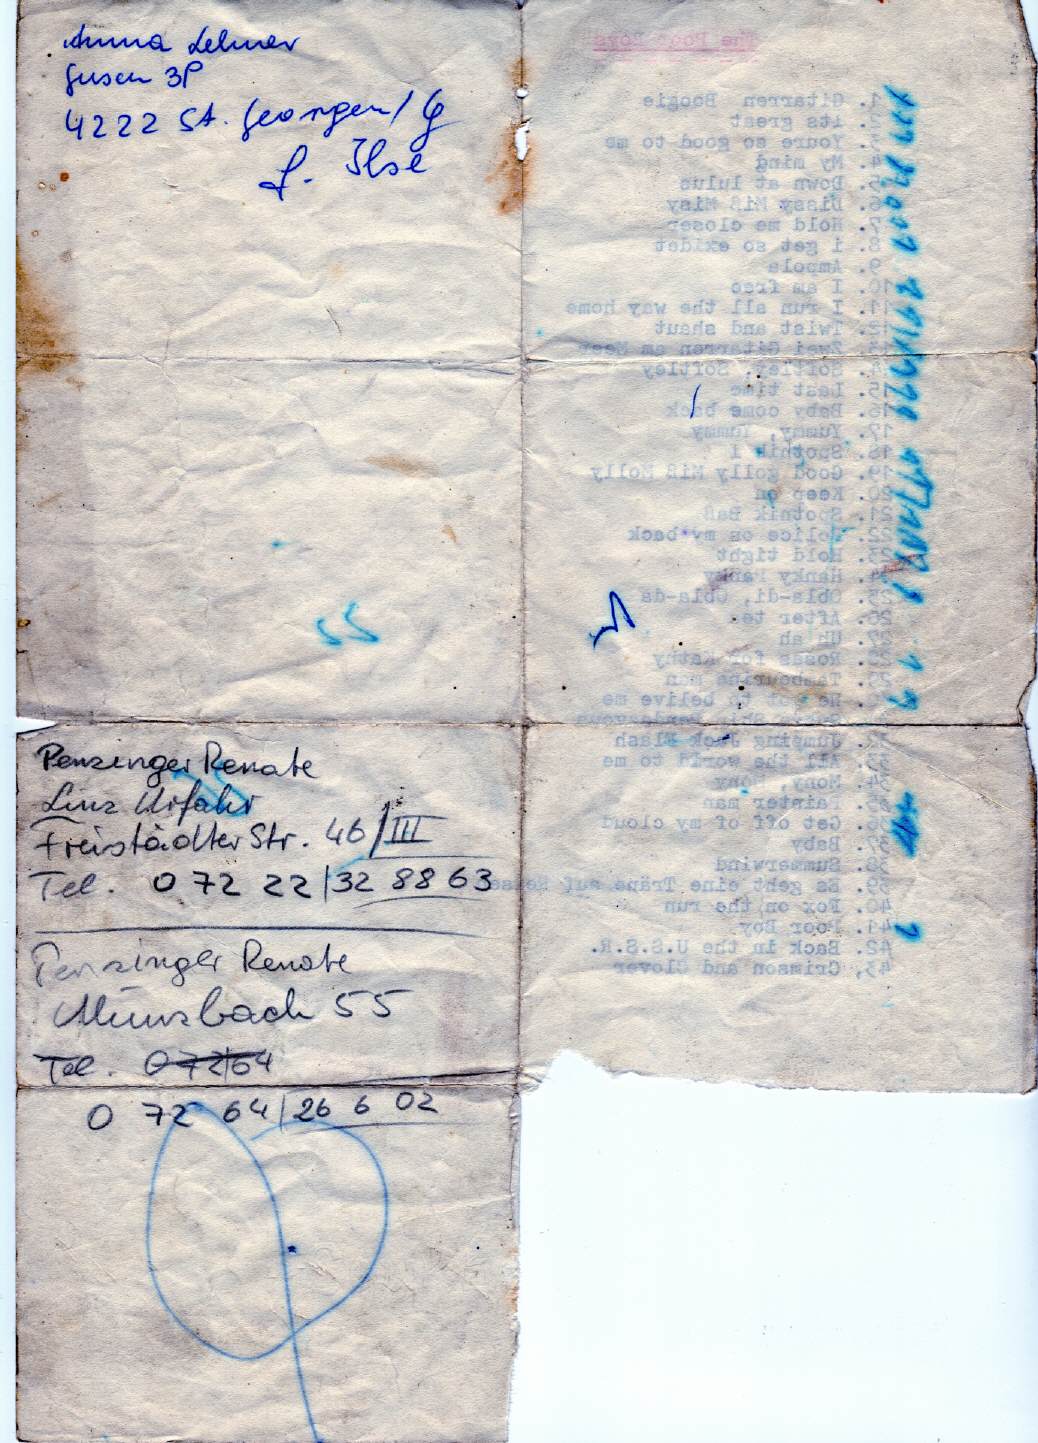 Anna Lehner
Gusen 3P
4222 St. Georgen/G
f. Ilse
The Poor Boys
1. Gitarren Boogie
2. its great
3. Youre so good to me
4. My ming
5. Down at lulus
6. Dissy Miß Misy
7. Hold me closer
8. i get so exidet
9. Ampola
10. I am free
11. I run all the way home
12. Twist and shaut
13. Zwei Gitarren am Meer
14. Softley, Softley
15. Last time
16. Baby come back
17. Yummy, Yummy
18. Spotnik 1
19. Good golly Miß Molly
20. Keep on
21. Spotnik Baß
22. Police on my back
23. Hold tight
24. Hanky Panky
25. Obla-di, Obla-da
26. After tea
27. Uh ah
28. Roses for Kathy
29. Tambourine man
30. He got to belive me
31. Rendezvous
32. Jumping Jack Flash
33. All the world to me
34. Mony, Mony
35. Painter man
36. Get off of my cloud
37. Baby
38. Summerwind
39. Es geht eine Träne auf Reise
40. Fox on the run
41. Poor Boy
42. Back in the U.S.S.R.
43, Crimson and Clover
Penzinger Renate
Linz Urfahr
Freistädter Str. 46/III
Tel. 0 72 22/32 88 63
Penzinger Renate
Münzbach 55
Tel. 072/64
0 72 64/26 6 02